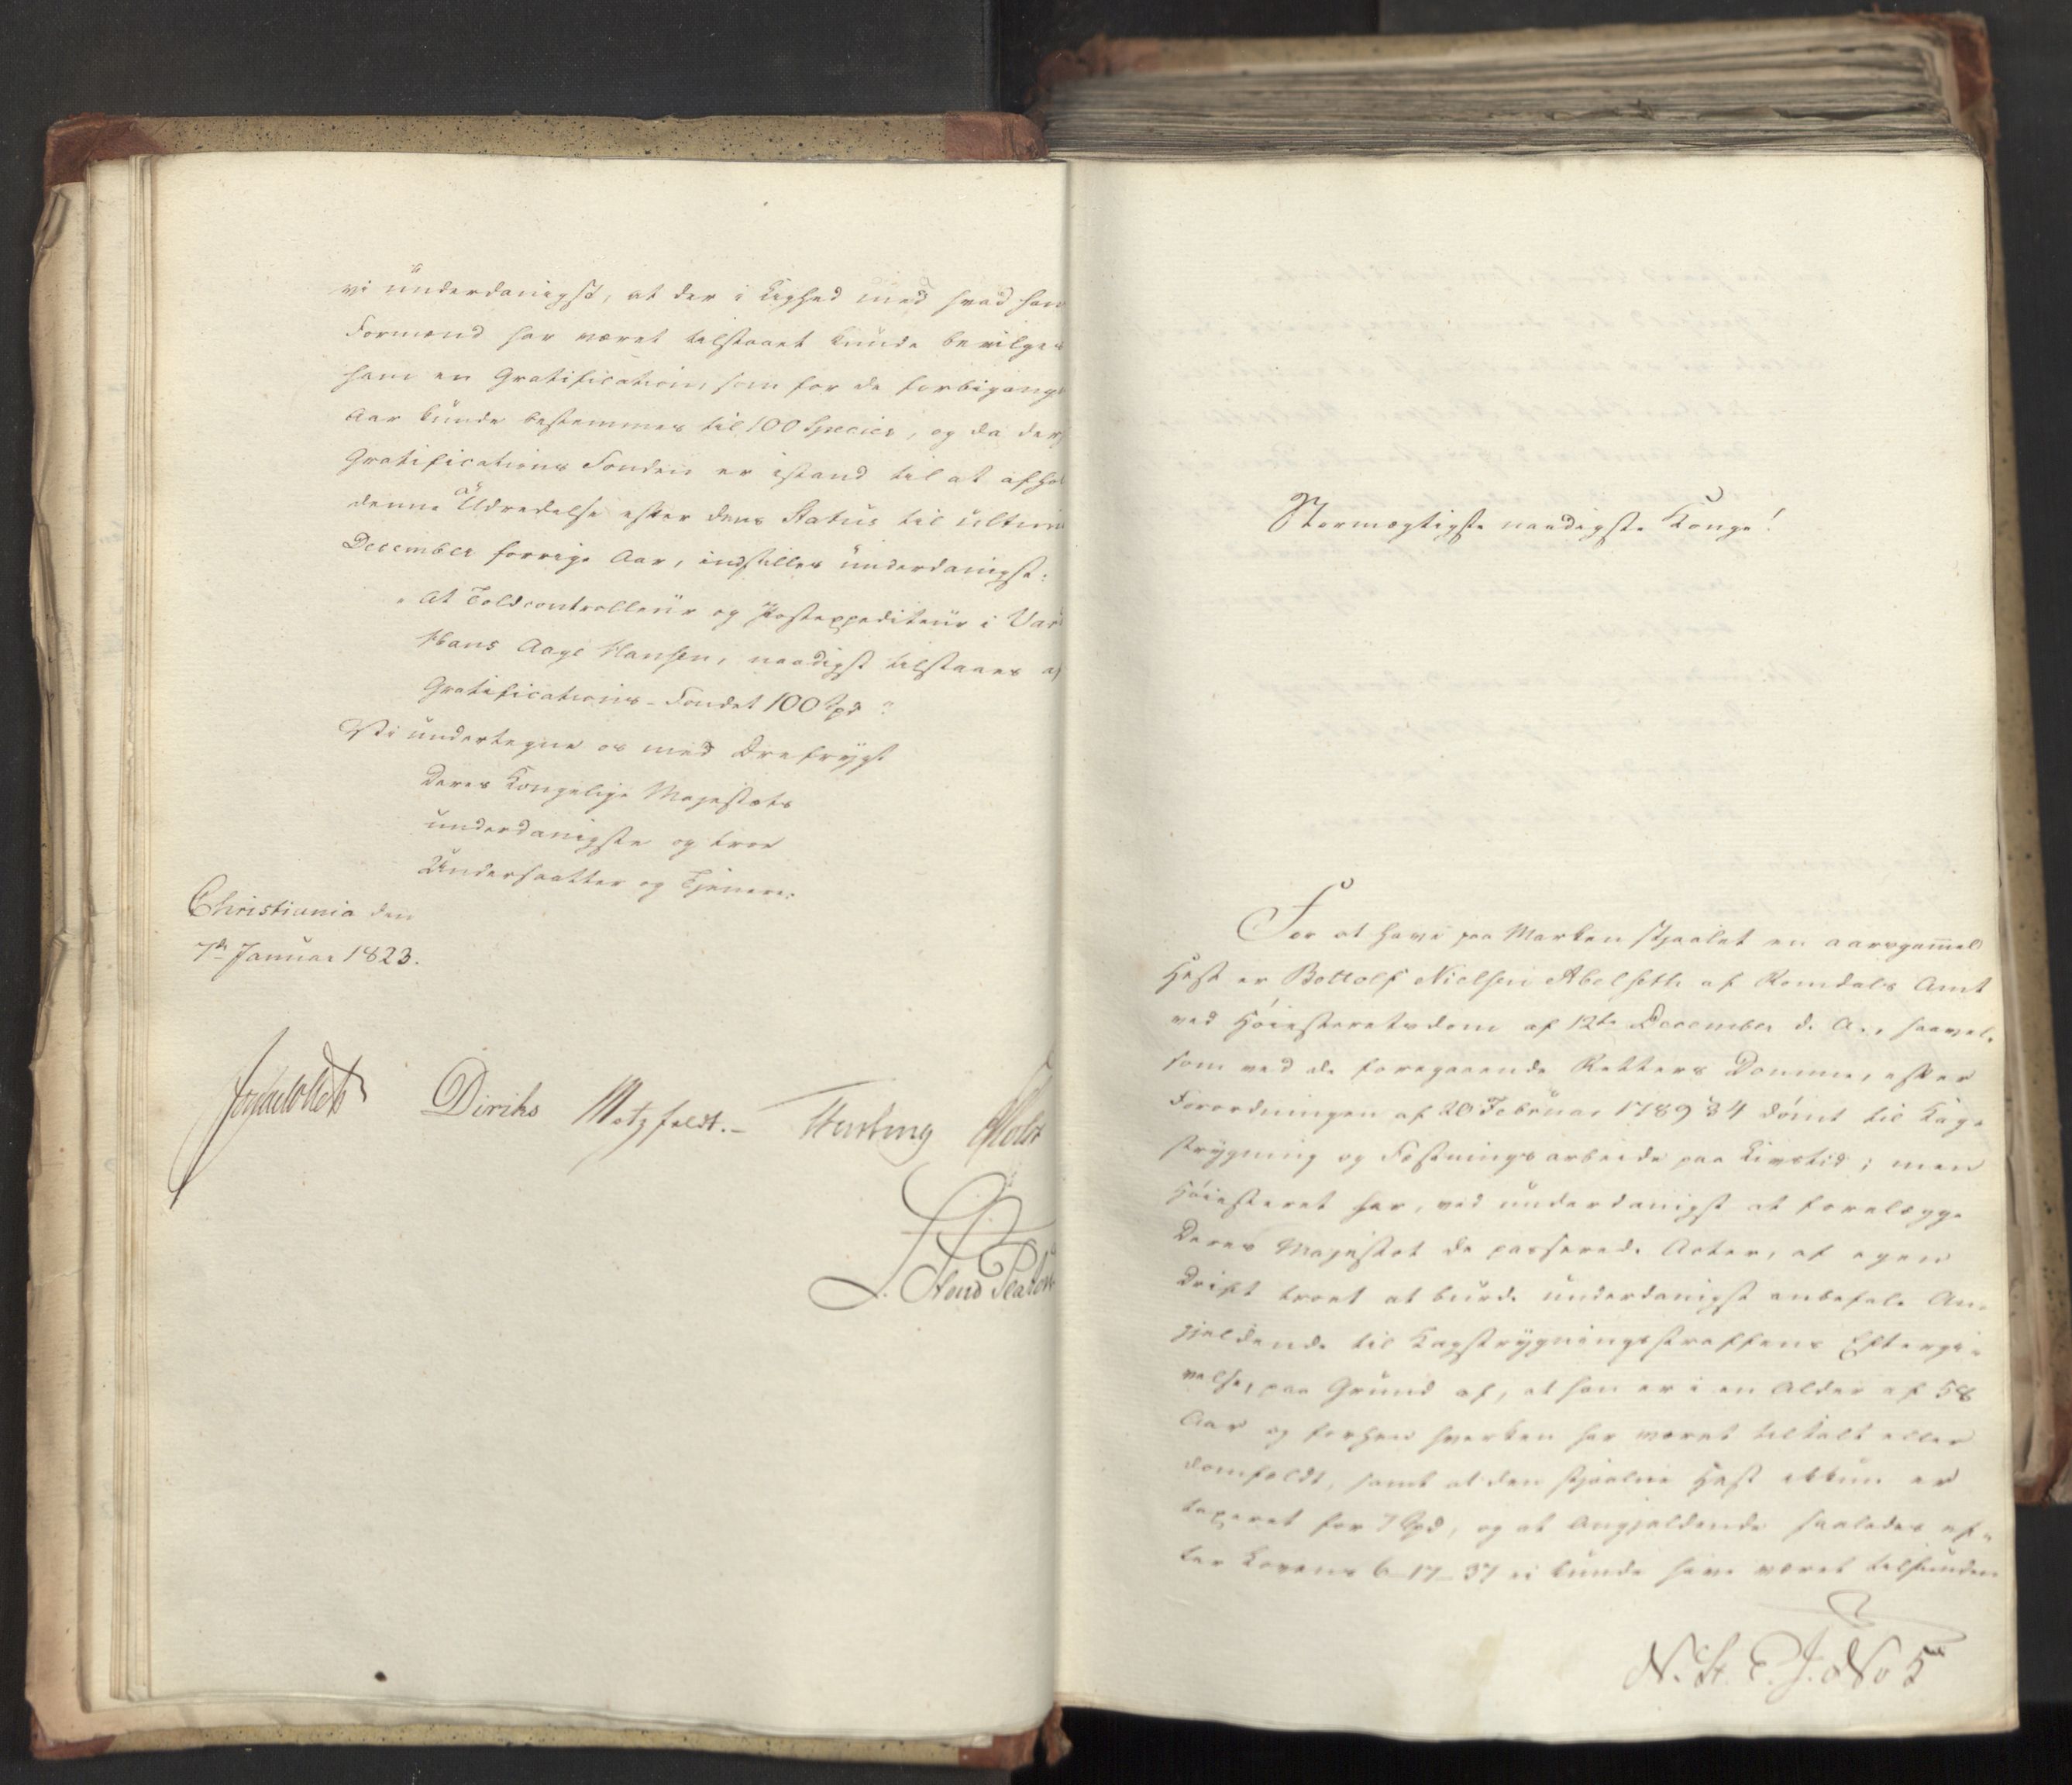 vi underdanigst, at der i Lighed med hvad han
Formænd har været tilstaaet kunde bevilges
ham en Gratification, som for de forbigangn
Aar kunde bestemmes til 100 Species, og da den
Gratifications Fonden er istand til at afhol
denne Udredelse efter dens Status til ultim
December forrige Aar, indstilles underdanigst:
"At Toldcontrolleur og Postexpediteur i Var
Hans Aage Hansen, naadigst tilstaaes af
Gratifications-Fondet 100 Spd"
Vi undertegne os med Ærefrygt
Deres Kongelige Majestæts
underdanigste og troe
Undersaatter og Tjenere.
Christiania den
7de Januar 1823.
Diriks Motzfeldt.- Holst
Stormægtigste naadigste Konge!
For at have paa Marken stjaalet en aarsgammel
Hest er Bottolf Nielsen Abelseth af Romsdals Amt
ved Höiesteretsdom af 12te December d. A., saavel-
som ved de foregaaende Retters Domme, efter
Forordningen af 20 Februar 1789 § 4 dömt til Kag-
strygning og Fæstningsarbeide paa Livstid; men
Höiesteret har, ved underdanigst at forelægge
Deres Majestæt de passerede Acter, af egen
Drift troet at burde underdanigst anbefale An-
gjeldende til Kagstrygningsstraffens Eftergi-
velse, paa Grund af, at han er i en Alder af 58
Aar og forhen hverken har været tiltalt eller
domfældt, samt at den stjaalne Hest ikkun er
taxeret for 7 Spd, og at Angjeldende saaledes ef-
ter Lovens 6-17-37 ei kunde have været tilfunden
N. St. C. J. No 5